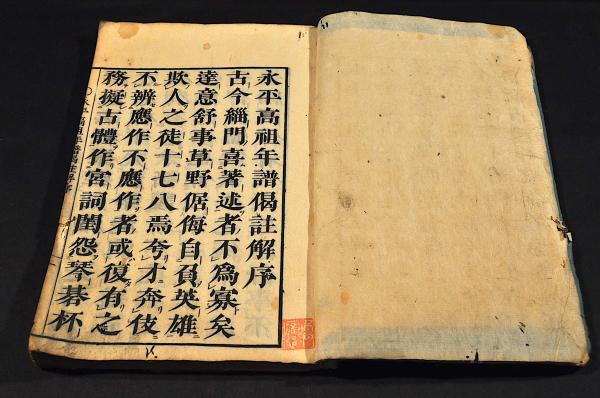 永平高祖年譜偈註解序
古今緇門喜著述者不爲寡矣
達意舒事草野倨侮自負英雄
欺人之徒十七八焉夸才奔伎
不辨應作不應作者或復有之
務擬古體作官詞閨怨琴碁杯